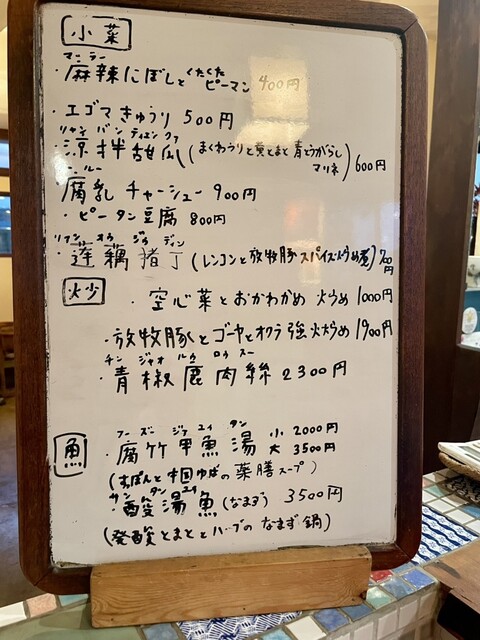 小菜
マーラー
・麻辣にぼしとくたくたピーマン 400円
・エゴマきゅうり 500円
リャン バン ティエン クァ
・涼拌甜瓜(まくわうりと黄とまと青とうがらしマリネ) 600円
フールー
・腐乳チャーシュー 900円
・ピータン豆腐 800円
リィァン オゥ ジゥ ディン
・蓮藕猪丁(レンコンと放牧豚スパイス炒め煮) 700円
炒
・空心菜とおかわかめ 炒め 1000円
・放牧豚とゴーヤとオクラ強火炒め 1900円
チン ジャオ ルゥ ロゥ スー
・青椒鹿肉絲 2300円
魚
フー ズー ジァ ユイ タン
・腐竹甲魚湯 小 2000円
大 3500円
(すっぽんと中国ゆばの薬膳スープ)
サン タン ユイ
・酸湯魚(なまず) 3500円
(発酸とまととハーブのなまず鍋)